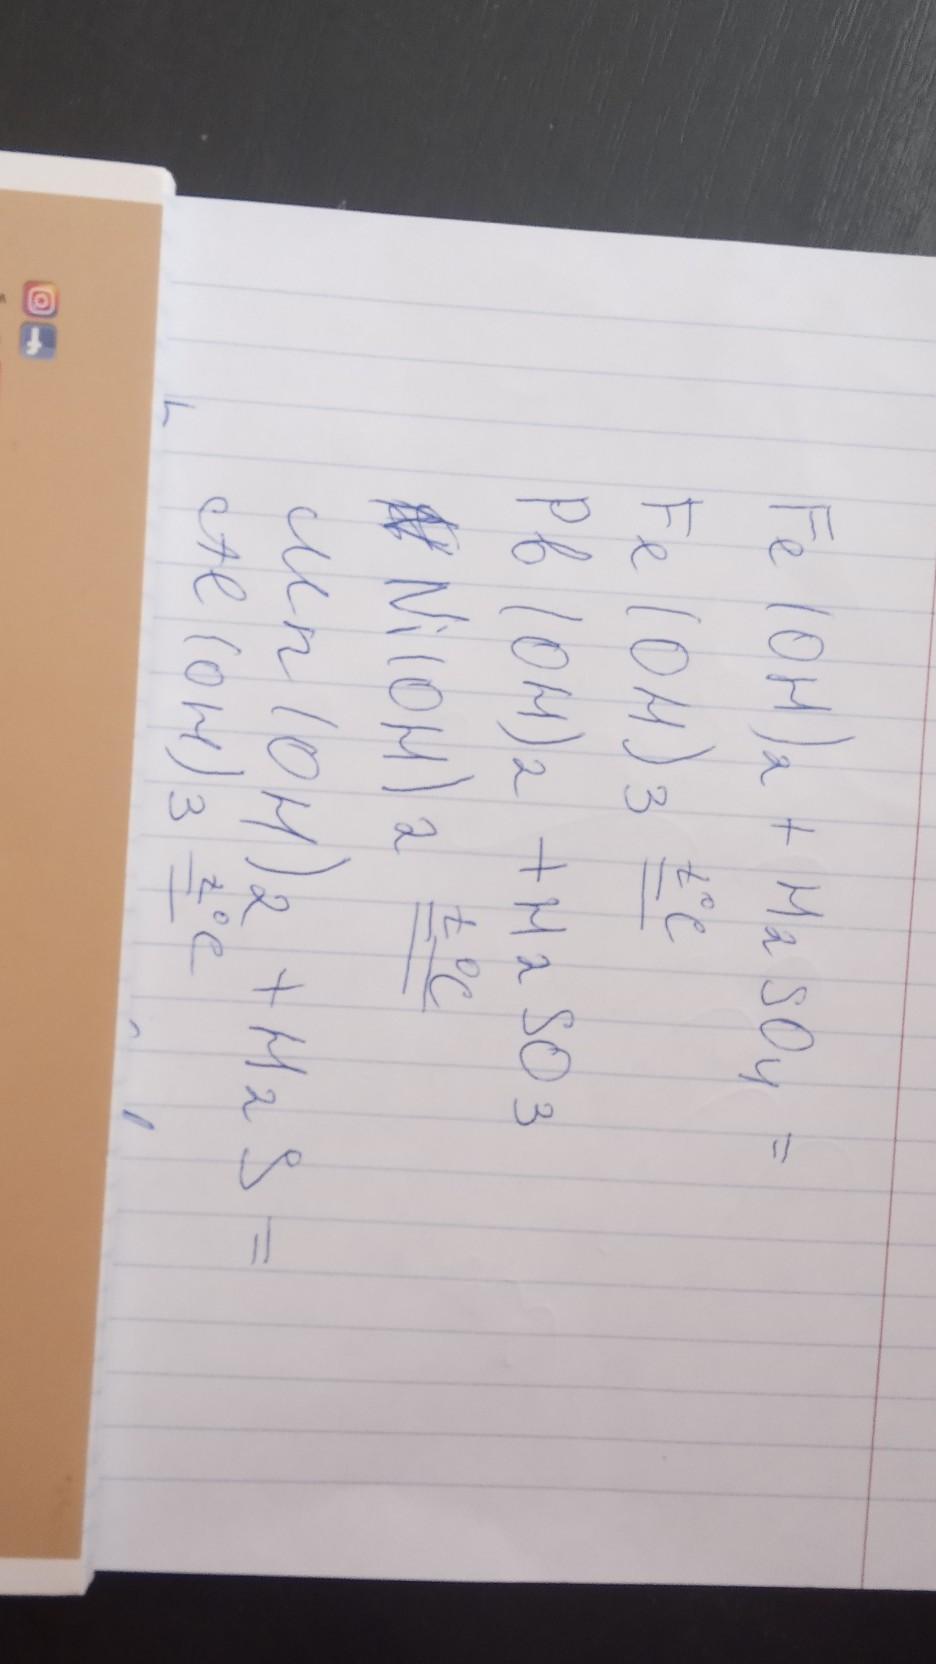 Fe(OH)2 + H2SO4 =
Fe(OH)3 t°C =
Pb(OH)2 + H2SO3
Ni(OH)2 t°C =
Mn(OH)2 + H2S =
Al(OH)3 t°C =